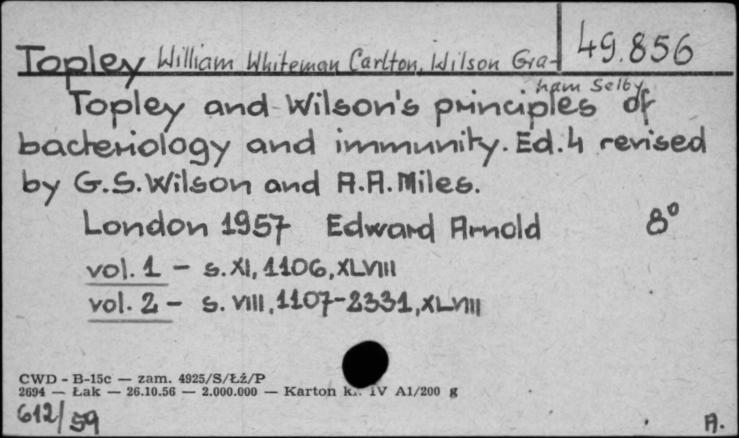 49.856
Topley William Whiteman Carlton, Wilson Gra-
ham Selby
Topley and Wilson's principles of
bacteriology and immunity. Ed. 4 revised
by G.S. Wilson and A.A. Miles.
London 1957 Edward Arnold 8°
vol. 1 – s. XI, 1106, XLVIII
vol. 2 – s. VIII, 1107-2331, XLVIII
CWD - B-15c — zam. 4925/S/Łż/P
2694 — Łak — 26.10.56 — 2.000.000 — Karton IV A1/200 g
612/59
A.